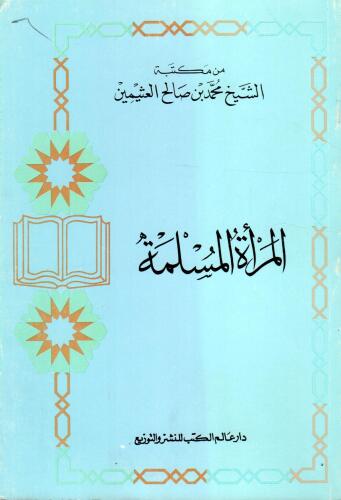 من مكتبة
الشيخ محمد بن صالح العثيمين
المرأة المسلمة
دار عالم الكتب للنشر والتوزيع